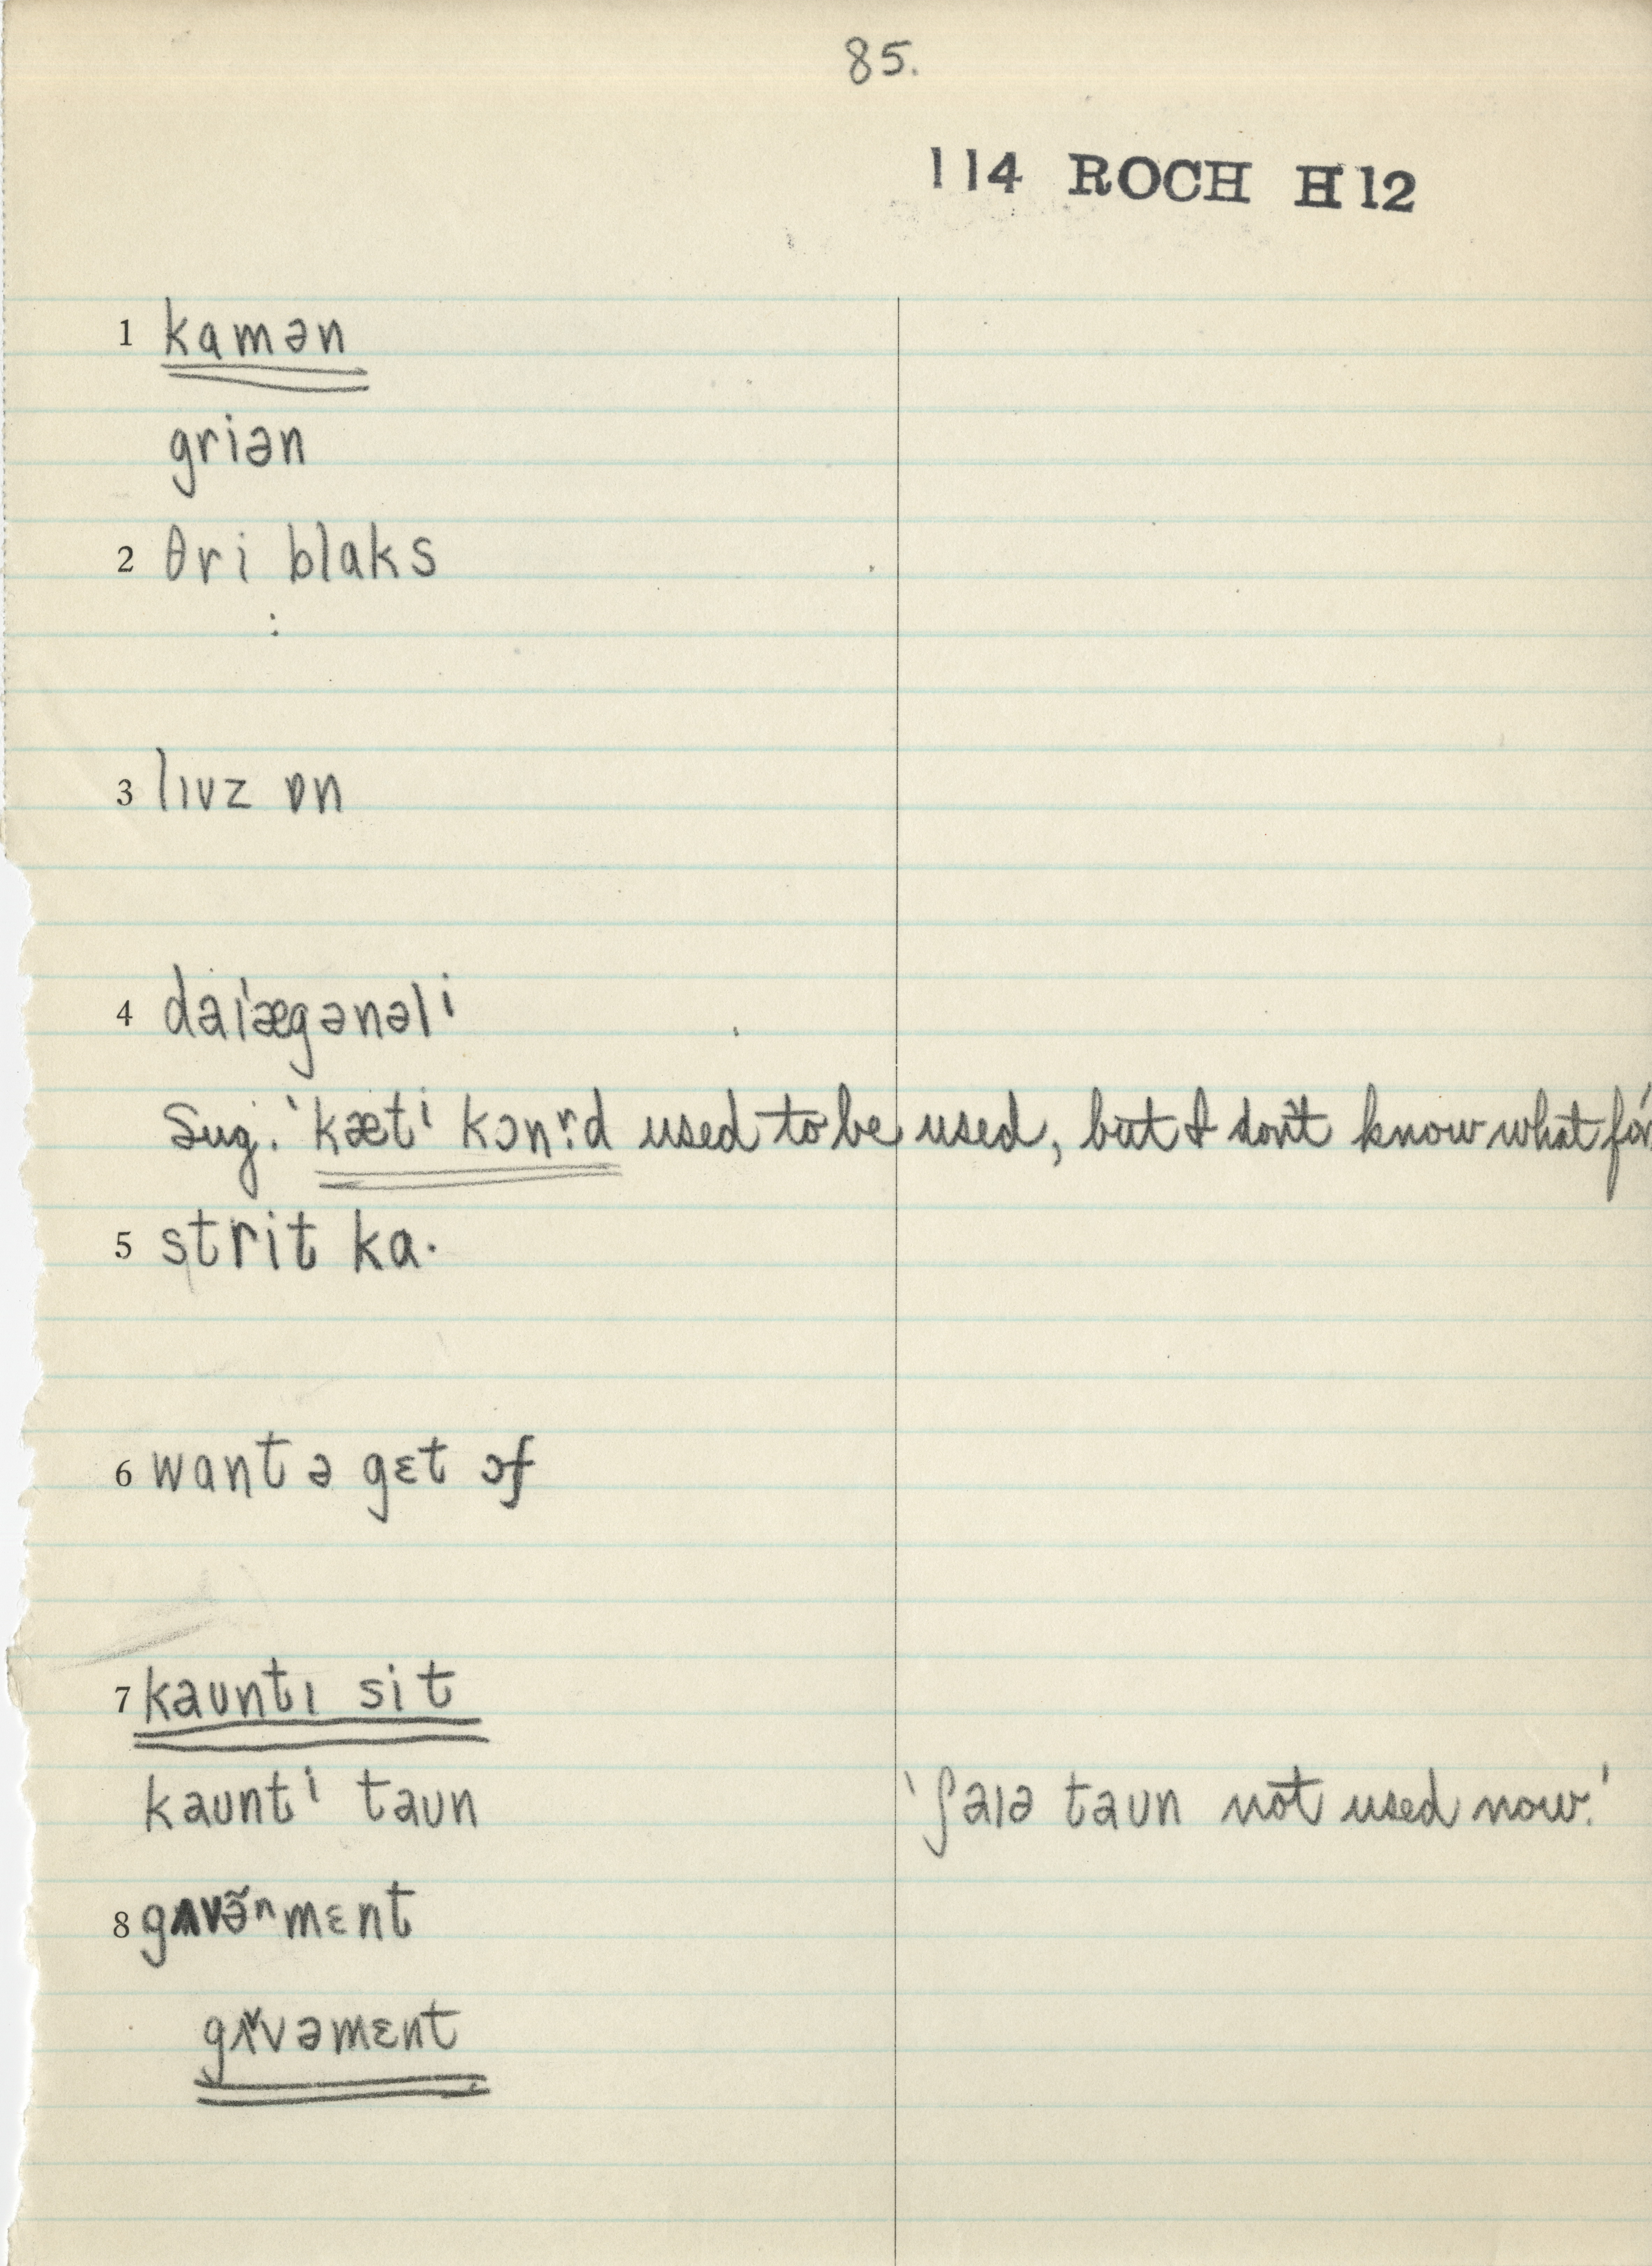 85.
114 ROCH H12
1 kamən
griən
2 θri blaks
:
3 lɪvz ɒn
4 daɪˈægənəlⁱ
Sug. 'kætⁱ kɔnʳːd used to be used, but I don't know what for.'
5 strit ka·
6 want ə gɛt ɔf
7 kaʊntɪ sit
kaʊntⁱ taʊn 'ʃaɪə taʊn not used now.'
8 gʌvə̃ⁿmɛnt
gʌ˅vəmɛnt